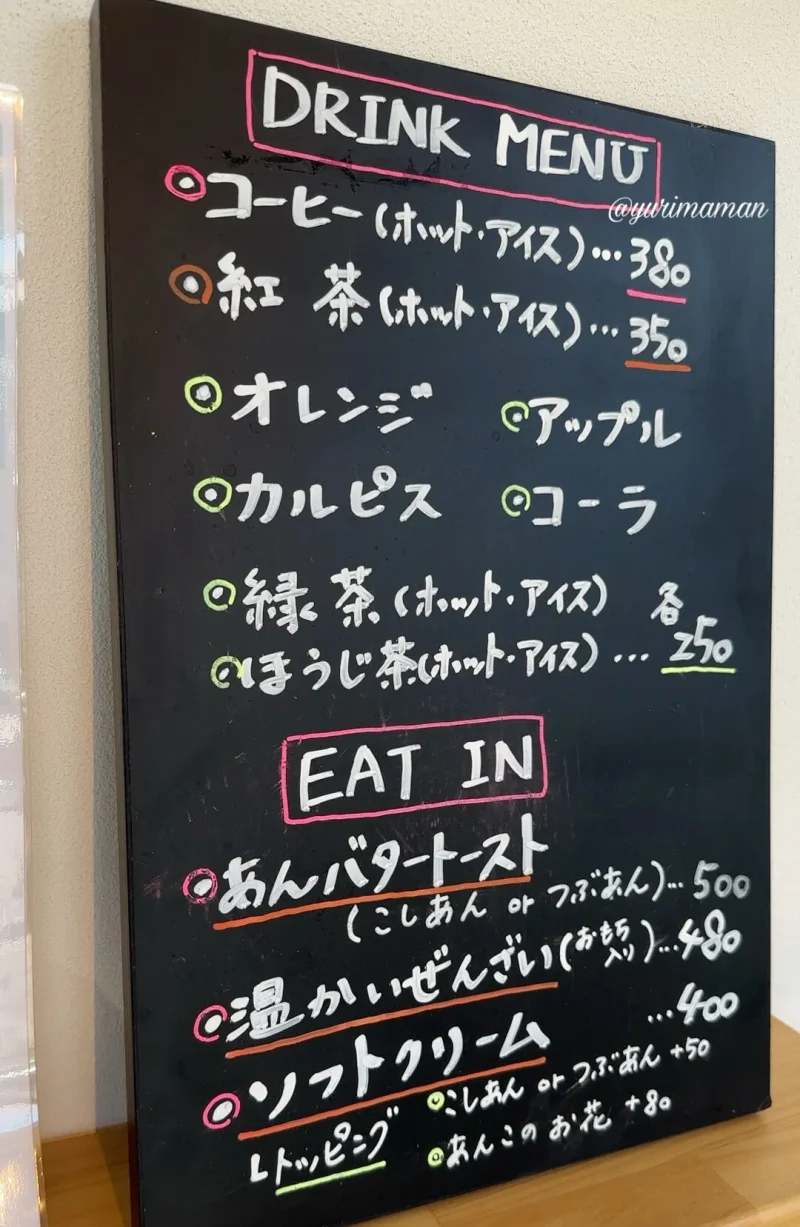 DRINK MENU
@yurimaman
コーヒー(ホット・アイス)…380
紅茶(ホット・アイス)…350
オレンジ アップル
カルピス コーラ
緑茶(ホット・アイス) 各
ほうじ茶(ホット・アイス)…250
EAT IN
あんバタートースト
(こしあん or つぶあん)…500
温かいぜんざい(おもち入り)…480
ソフトクリーム …400
トッピング こしあん or つぶあん +50
あんこのお花 +80